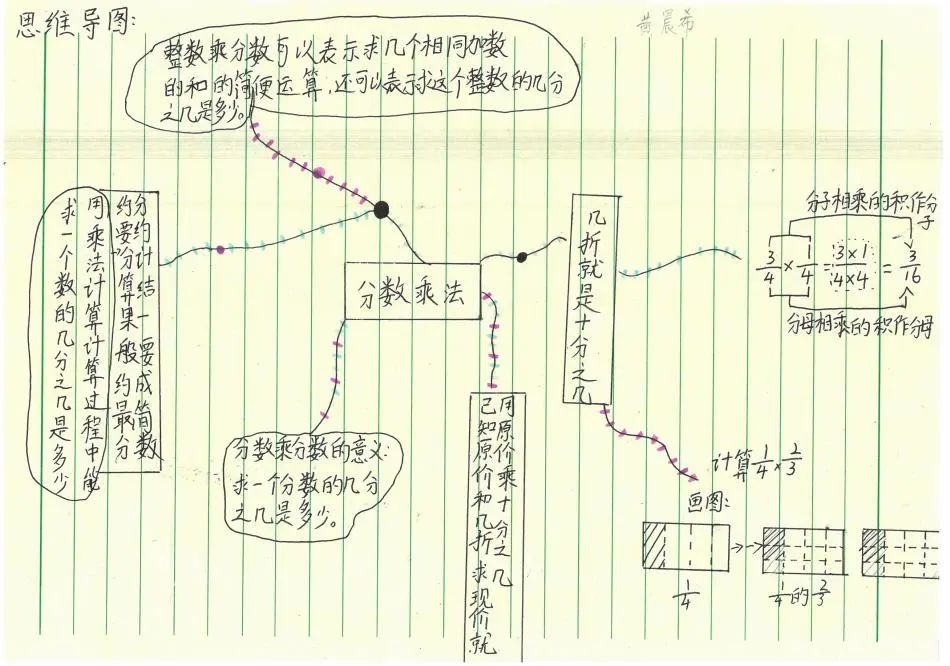 思维导图:
黄晨希
整数乘分数可以表示求几个相同加数
的和的简便运算,还可以表示求这个整数的几分
之几是多少。
求一个数的几分之几是多少
用乘法计算计算过程中能
约分要约分计算结果一般要约成最简分数
分数乘法
几折就是十分之几
分子相乘的积作分子
3/4 × 1/4 = 3×1/4×4 = 3/16
分母相乘的积作分母
分数乘分数的意义:
求一个分数的几分
之几是多少。
已知原价和几折求现价就
用原价乘十分之几
计算1/4×2/3
画图:
1/4
1/4的2/3